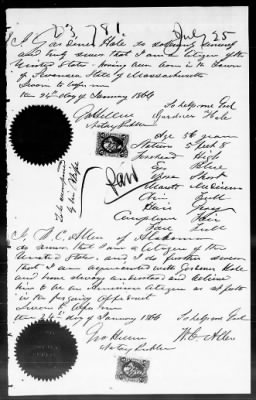 23,781 July 25
I Gardner Hale do solemnly
and truly swear that I am a citizen of the
United States - having been born in the Town
of Swansea State of Massachusetts
Sworn to before me
the 24th day of January 1866
So help me God
Gardner Hale
Notary Public
Age 56 years
Stature 5 feet 8
Forehead High
Eyes Blue
Nose Short
Mouth Medium
Chin Full
Hair Gray
Complexion Fair
Face Full
To be accompanied
by his Wife
I, W. C. Allen of
do swear that I am a Citizen of the
United States, and I do further swear
that I am acquainted with Gardner Hale
and have always understood and believed
him to be an American Citizen as set forth
in the foregoing affidavit
Sworn to before me
the 24th day of January 1866
So help me God
W. C. Allen
Notary Public